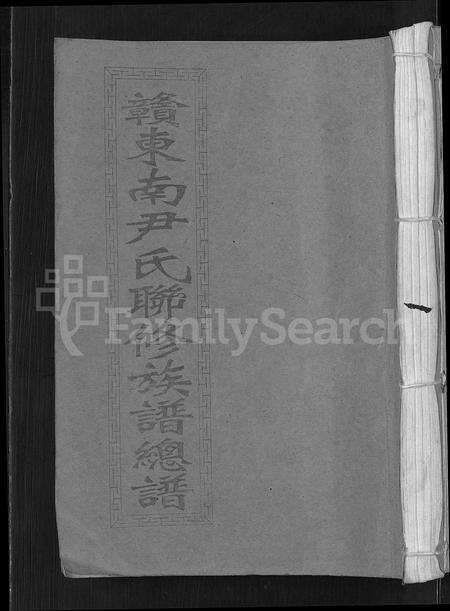 贛東南尹氏聯修族譜總譜
FamilySearch